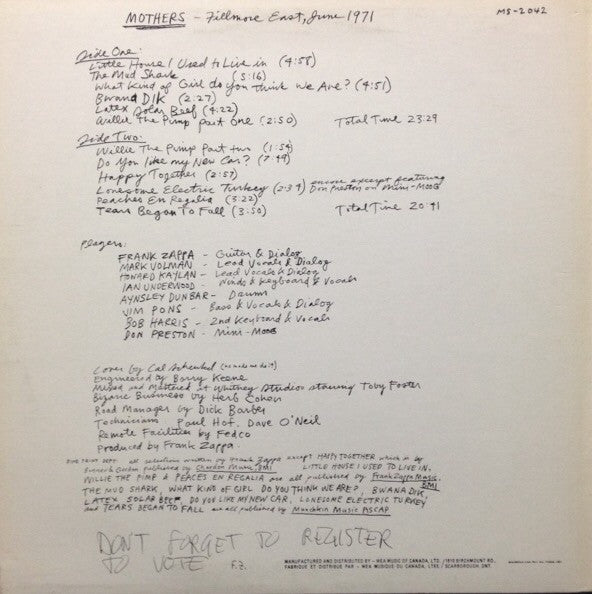 MOTHERS - Fillmore East, June 1971
MS-2042
Side One:
Little House I Used to Live in (4:58)
The Mud Shark (5:16)
What Kind of Girl do you think we Are? (4:51)
Bwana Dik (2:27)
Latex Solar Beef (4:22)
Willie The Pimp part one (2:50) Total Time 23:29
Side Two:
Willie The Pimp Part two (1:54)
Do You like my New Car? (7:49)
Happy Together (2:57)
Lonesome Electric Turkey (2:34) encore excerpt featuring Don Preston on Mini-Moog
Peaches En Regalia (3:22)
Tears Began To Fall (3:50) Total Time 20:41
Players:
FRANK ZAPPA - Guitar & Dialog
MARK VOLMAN - Lead Vocals & Dialog
HOWARD KAYLAN - Lead Vocals & Dialog
IAN UNDERWOOD - Winds & Keyboard & Vocals
AYNSLEY DUNBAR - Drums
JIM PONS - Bass & Vocals & Dialog
BOB HARRIS - 2nd Keyboard & Vocals
DON PRESTON - Mini-Moog
Cover by Cal Schenkel (he made me do it)
Engineered by Barry Keene
Mixed and Mastered at Whitney Studios starring Toby Foster
Bizarre Business by Herb Cohen
Road Manager by Dick Barber
Technicians Paul Hof, Dave O'Neil
Remote Facilities by Fedco
Produced by Frank Zappa
FINE PRINT DEPT: all selections written by Frank Zappa except HAPPY TOGETHER which is by
Bonner & Gordon published by Chardon Music, BMI LITTLE HOUSE I USED TO LIVE IN,
WILLIE THE PIMP & PEACES EN REGALIA are all published by Frank Zappa Music, BMI
THE MUD SHARK, WHAT KIND OF GIRL DO YOU THINK WE ARE?, BWANA DIK,
LATEX SOLAR BEEF, DO YOU LIKE MY NEW CAR, LONESOME ELECTRIC TURKEY
and TEARS BEGAN TO FALL are all published by Munchkin Music ASCAP
DON'T FORGET TO REGISTER
TO VOTE F.Z.
MANUFACTURED AND DISTRIBUTED BY - WEA MUSIC OF CANADA, LTD. / 1810 BIRCHMOUNT RD.,
FABRIQUE ET DISTRIBUE PAR - WEA MUSIQUE DU CANADA, LTEE / SCARBOROUGH, ONT.